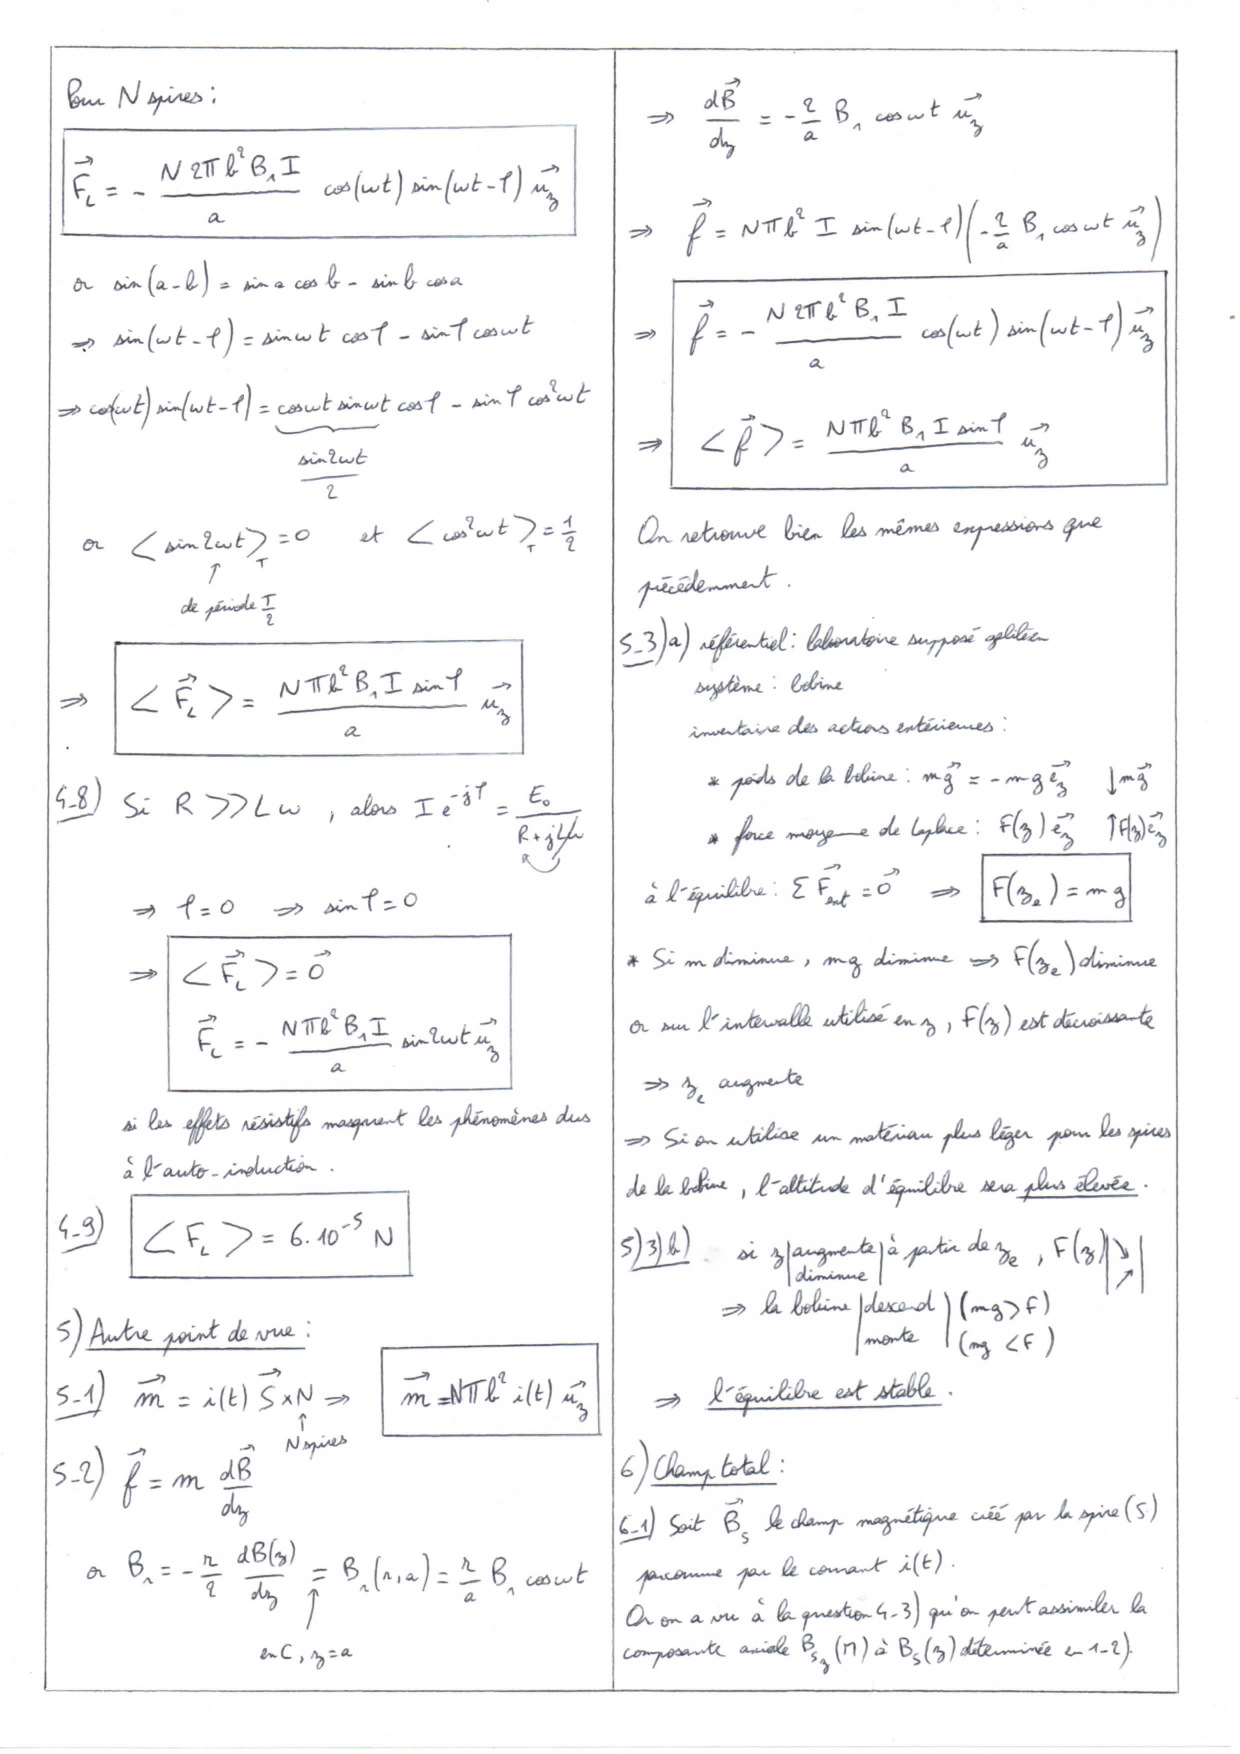 Pour N spires :
F⃗_L = - (N 2π b² B₁ I / a) cos(ωt) sin(ωt-φ) u⃗_z
or sin(a-b) = sin a cos b - sin b cos a
⇒ sin(ωt-φ) = sin ωt cos φ - sin φ cos ωt
⇒ cos(ωt) sin(ωt-φ) = cos ωt sin ωt cos φ - sin φ cos² ωt
sin 2ωt / 2
or < sin 2ωt >_T = 0 et < cos² ωt >_T = 1/2
↑
de période T/2
⇒ < F⃗_L > = (N π b² B₁ I sin φ / a) u⃗_z
4-8) Si R >> Lω, alors I e^{-jφ} = E₀ / (R + jLω)
⇒ φ = 0 ⇒ sin φ = 0
⇒ < F⃗_L > = 0⃗
F⃗_L = - (N π b² B₁ I / a) sin 2ωt u⃗_z
si les effets résistifs masquent les phénomènes dus
à l'auto-induction.
4-9) < F_L > = 6.10⁻⁵ N
5) Autre point de vue :
5-1) m⃗ = i(t) S⃗ × N ⇒ m⃗ = N π b² i(t) u⃗_z
↑
N spires
5-2) f⃗ = m dB⃗/dz
or B_r = - (r/2) dB(z)/dz = B_r(r,a) = (r/a) B₁ cos ωt
↑
en C, z = a
⇒ dB⃗/dz = - (2/a) B₁ cos ωt u⃗_z
⇒ f⃗ = N π b² I sin(ωt-φ) (- (2/a) B₁ cos ωt u⃗_z)
⇒ f⃗ = - (N 2π b² B₁ I / a) cos(ωt) sin(ωt-φ) u⃗_z
⇒ < f⃗ > = (N π b² B₁ I sin φ / a) u⃗_z
On retrouve bien les mêmes expressions que
précédemment.
5-3) a) référentiel : laboratoire supposé galiléen
système : bobine
inventaire des actions extérieures :
* poids de la bobine : m g⃗ = - m g e⃗_z ↓ m g⃗
* force moyenne de Laplace : F(z) e⃗_z ↑ F(z) e⃗_z
à l'équilibre : Σ F⃗_ext = 0⃗ ⇒ F(z_e) = m g
* Si m diminue, mg diminue ⇒ F(z_e) diminue
or sur l'intervalle utilisé en z, F(z) est décroissante
⇒ z_e augmente
⇒ Si on utilise un matériau plus léger pour les spires
de la bobine, l'altitude d'équilibre sera plus élevée.
5) 3) b) si z | augmente | à partir de z_e, F(z) | ↘ |
diminue ↗
⇒ la bobine | descend | (mg > F)
monte (mg < F)
⇒ l'équilibre est stable.
6) Champ total :
6-1) Soit B⃗_S le champ magnétique créé par la spire (S)
parcourue par le courant i(t).
Or on a vu à la question 4-3) qu'on peut assimiler la
composante axiale B_{S_z}(M) à B_S(z) déterminée en 1-2).